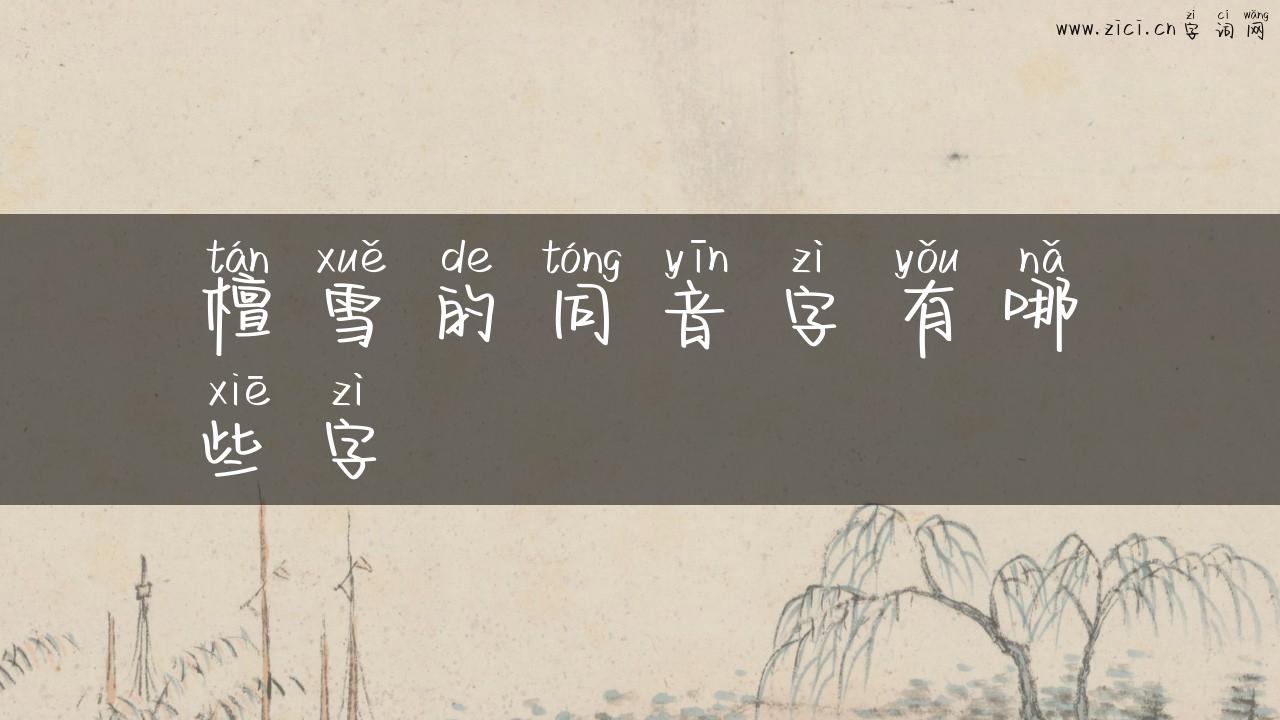 zì cí wǎng
www.zici.cn 字词网
tán xuě de tóng yīn zì yǒu nǎ
檀雪的同音字有哪
xiē zì
些字